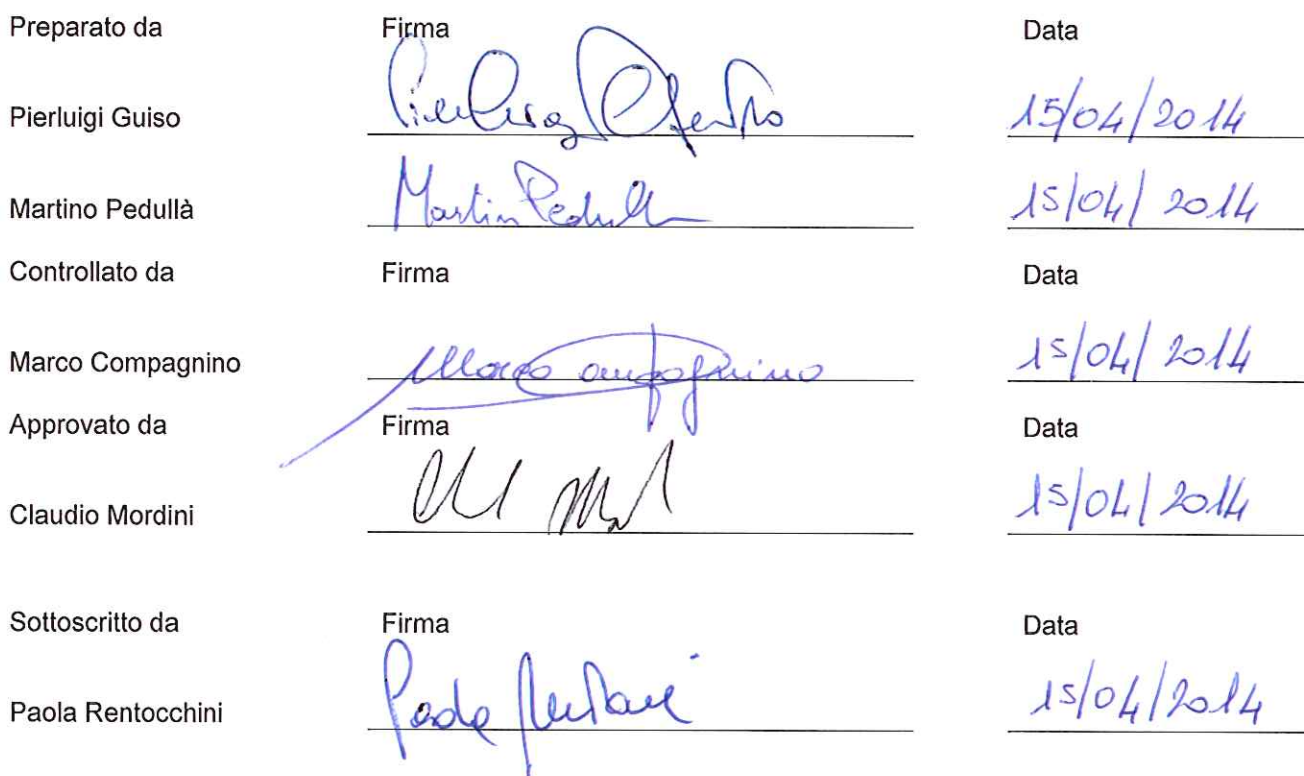 Preparato da Firma Data
Pierluigi Guiso 15/04/2014
Martino Pedullà Martin Pedull 15/04/2014
Controllato da Firma Data
Marco Compagnino Marco Compagnino 15/04/2014
Approvato da Firma Data
Claudio Mordini 15/04/2014
Sottoscritto da Firma Data
Paola Rentocchini Paola 15/04/2014